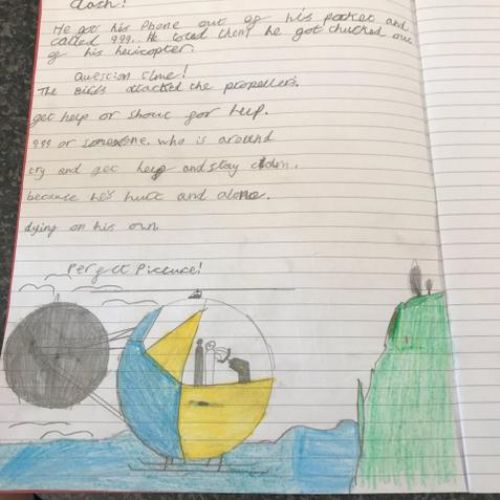 Clash!
He got his Phone out of his pocket and
called 999. He told them he got chucked out
of his helicopter.
Question time!
The birds attacked the propellers.
get help or shout for help.
999 or someone who is around
try and get help and stay calm.
because he's hurt and alone.
dying on his own.
Perfect Picture!